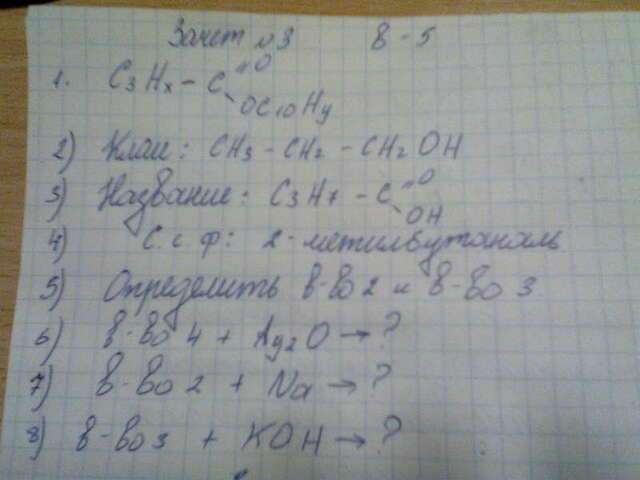 Зачет №3 В-5
1. C3Hx - C =O
OC10Hy
2) Клас: CH3 - CH2 - CH2OH
3) Название: C3H7 - C =O
OH
4) С.с.ф: 2-метилбутаналь
5) Определить в-во 2 и в-во 3
6) в-во 4 + Ag2O → ?
7) в-во 2 + Na → ?
8) в-во 3 + KOH → ?